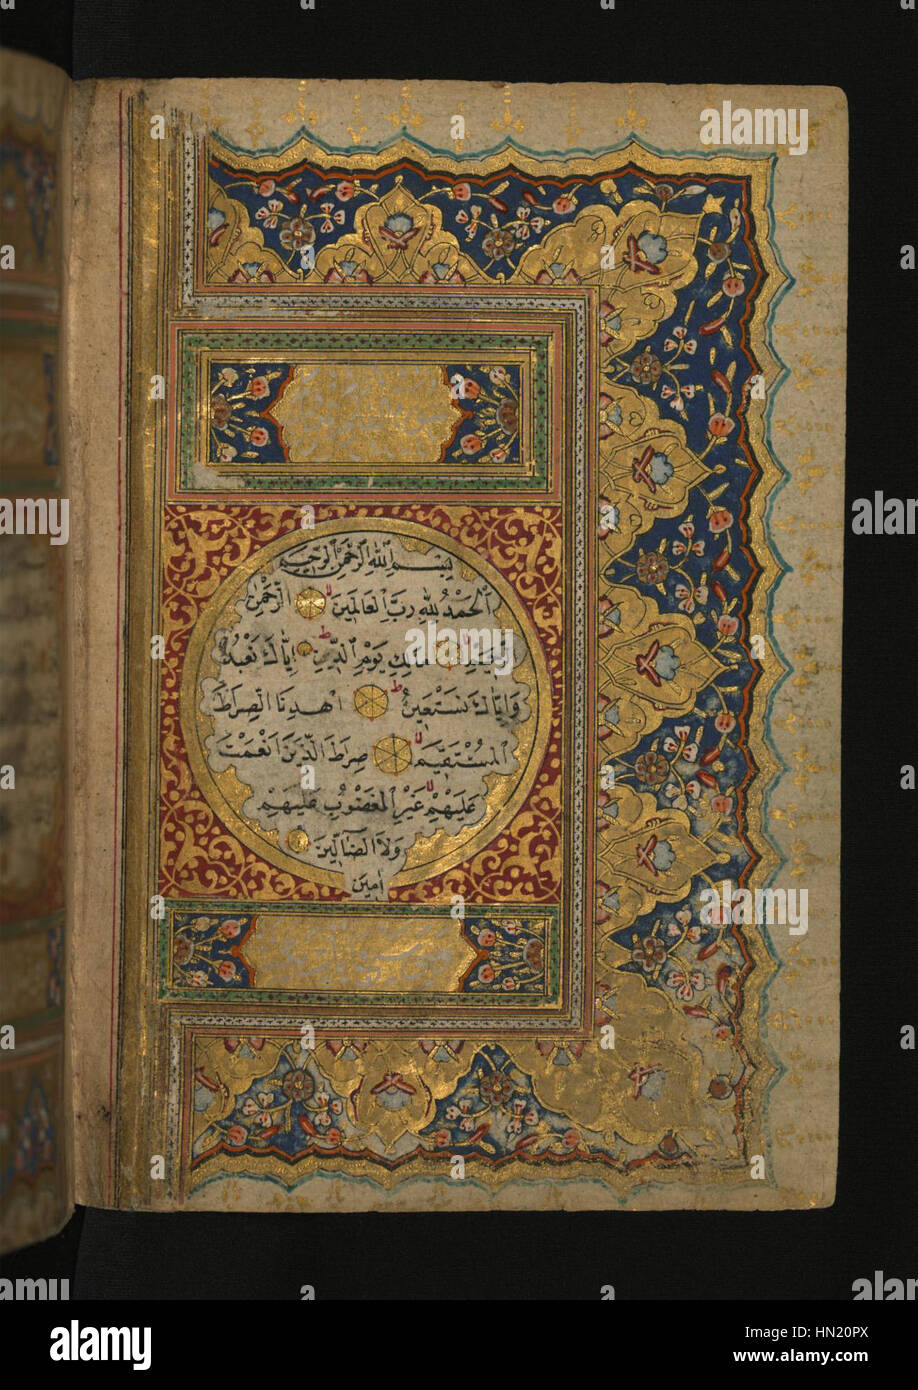 بِسْمِ اللهِ الرَّحْمٰنِ الرَّحِيمِ
اَلْحَمْدُ لِلّٰهِ رَبِّ الْعَالَمِينَ الرَّحْمٰنِ
الرَّحِيمِ مَالِكِ يَوْمِ الدِّينِ اِيَّاكَ نَعْبُدُ
وَاِيَّاكَ نَسْتَعِينُ اِهْدِنَا الصِّرَاطَ
الْمُسْتَقِيمَ صِرَاطَ الَّذِينَ اَنْعَمْتَ
عَلَيْهِمْ غَيْرِ الْمَغْضُوبِ عَلَيْهِمْ
وَلَا الضَّالِّينَ
اٰمِين
alamy
Image ID: HN20PX
www.alamy.com